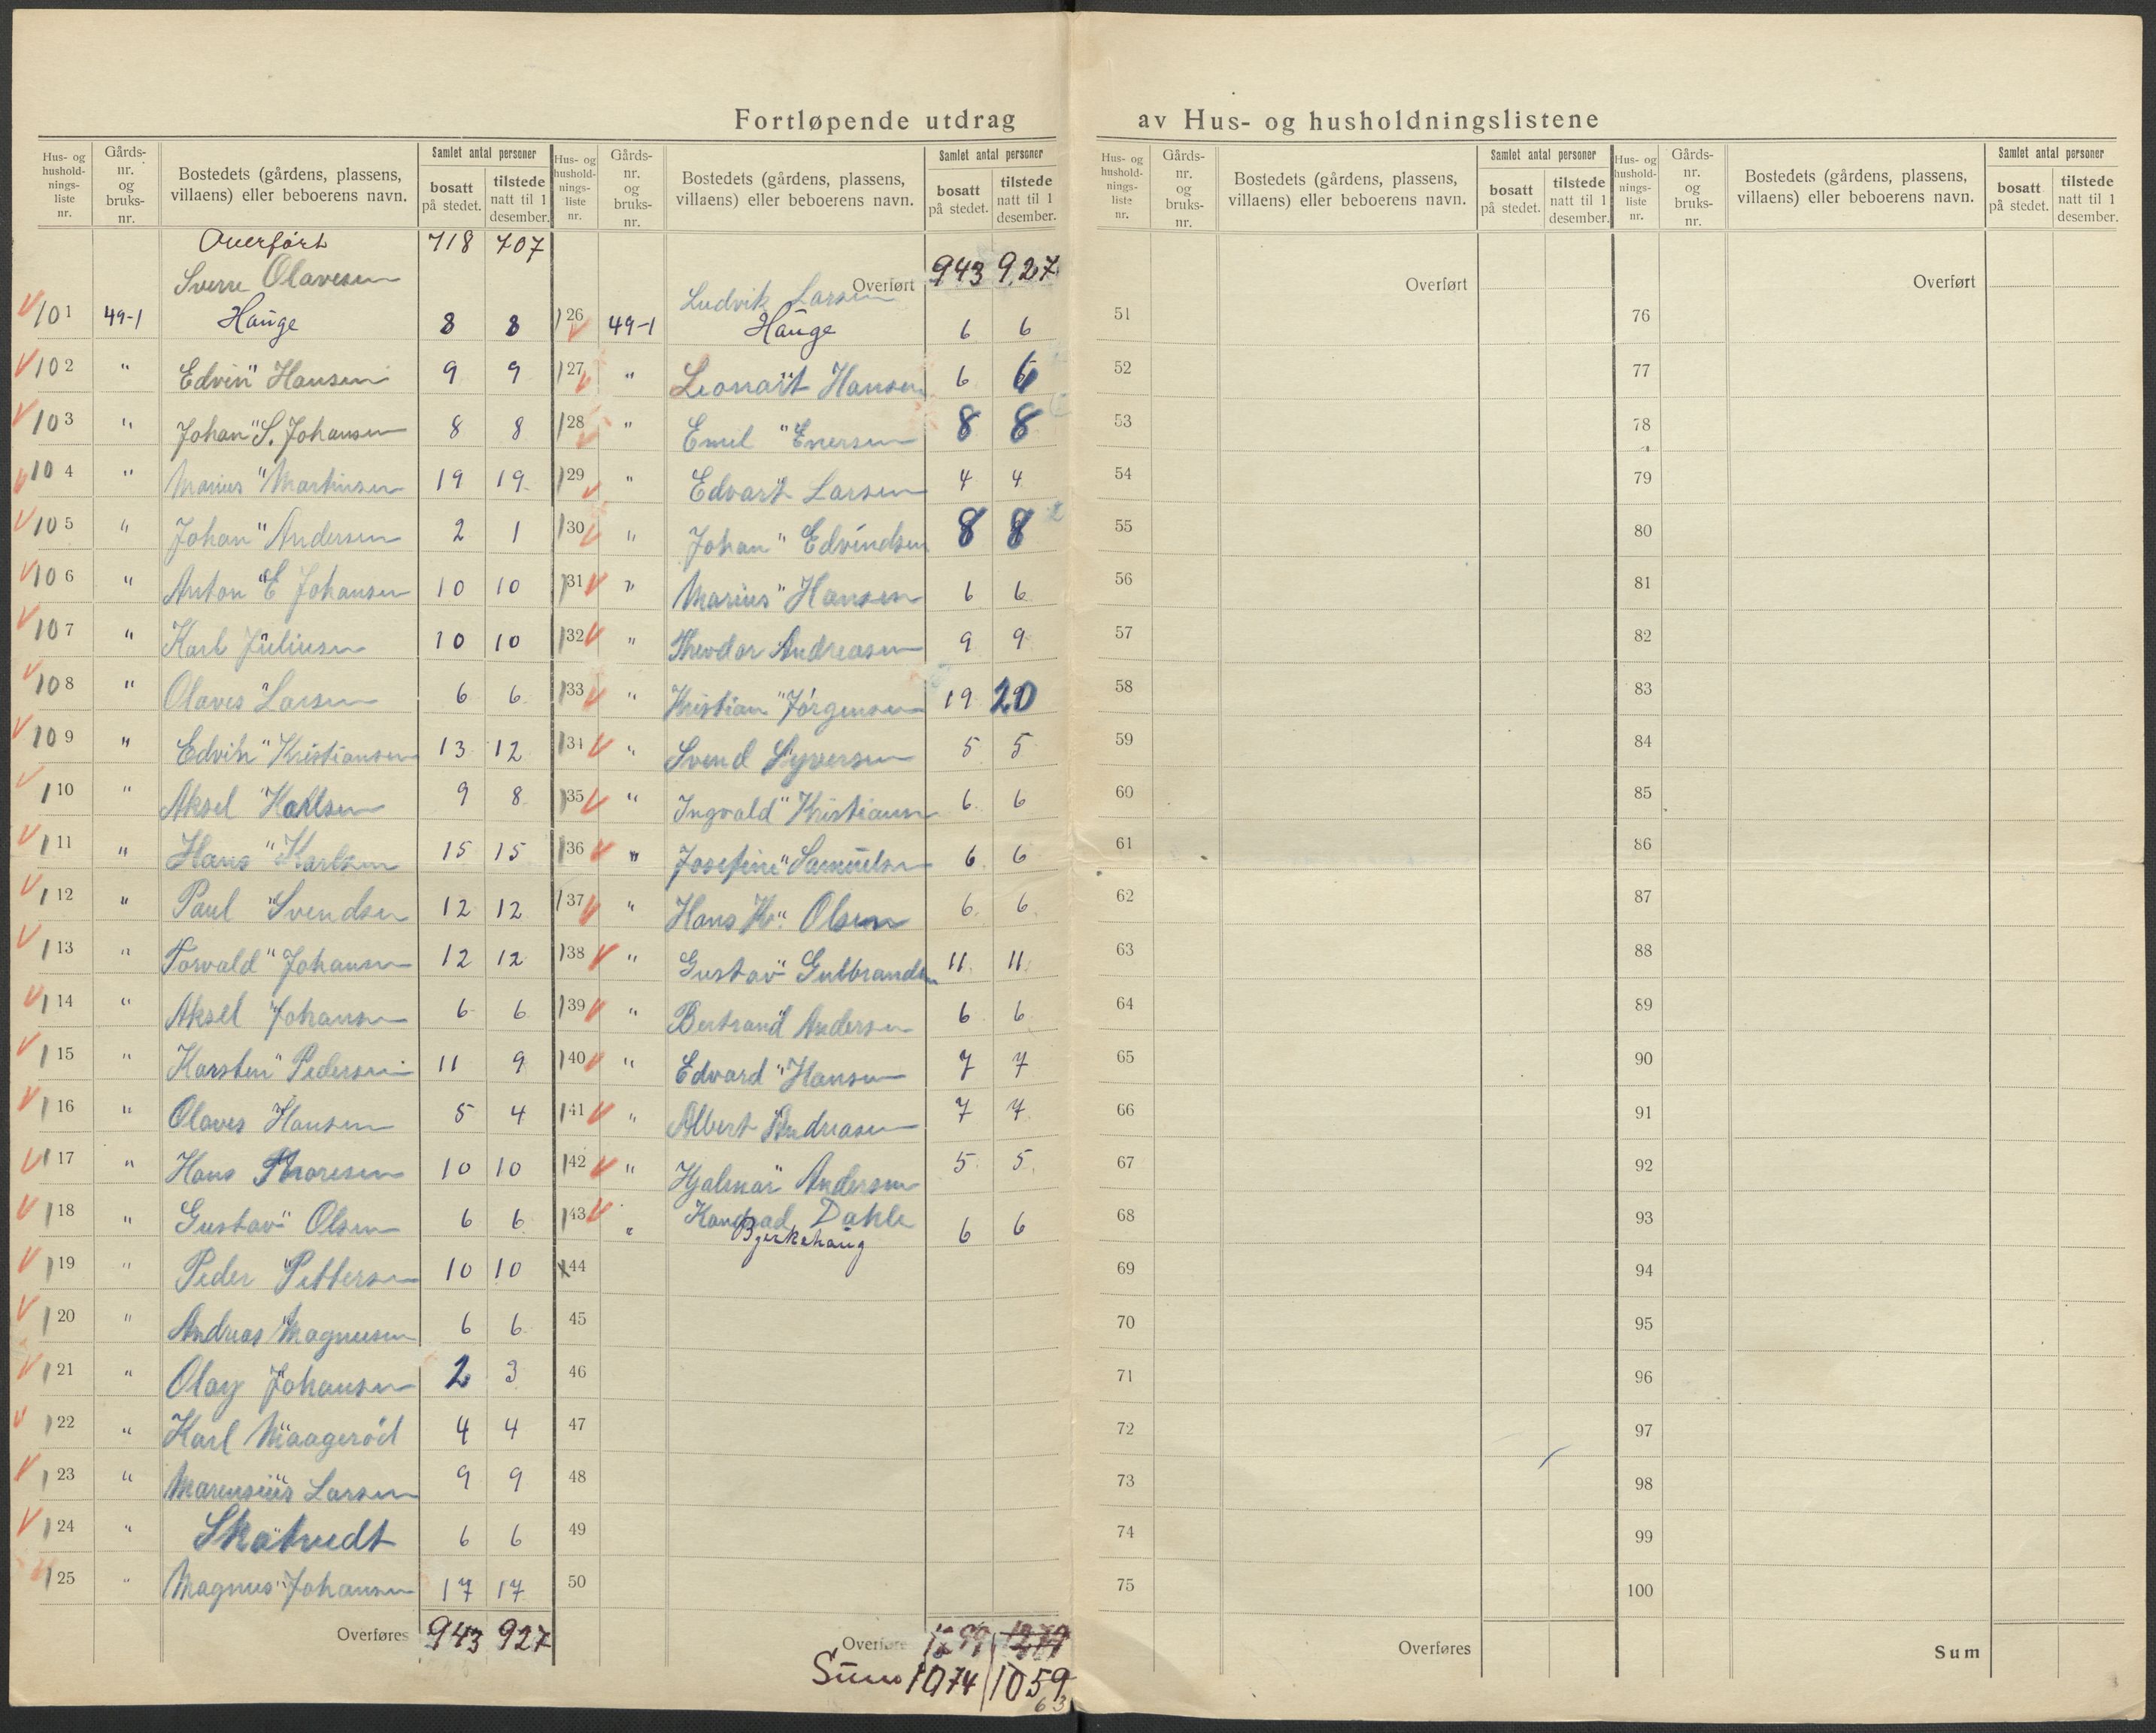 Fortløpende utdrag av Hus- og husholdningslistene
Hus- og hushold-nings-liste nr. Gårds-nr. og bruks-nr. Bostedets (gårdens, plassens, villaens) eller beboerens navn. Samlet antal personer bosatt på stedet. tilstede natt til 1 desember.
Overført 718 707
Sverre Olavesen
101 49-1 Hauge 8 8
102 " Edvin " Hansen 9 9
103 " Johan " S. Johansen 8 8
104 " Marius " Martinsen 19 19
105 " Johan " Andersen 2 1
106 " Anton " E Johansen 10 10
107 " Karl Juliusen 10 10
108 " Olaves Larsen 6 6
109 " Edvin " Kristiansen 13 12
110 " Aksel Karlsen 9 8
111 " Hans " Karlsen 15 15
112 " Paul " Svendsen 12 12
113 " Torvald " Johansen 12 12
114 " Aksel Johansen 6 6
115 " Karsten " Pedersen 11 9
116 " Olaves Hansen 5 4
117 " Hans Thoresen 10 10
118 " Gustav " Olsen 6 6
119 " Peder " Pettersen 10 10
120 " Andreas Magnusen 6 6
121 " Olav Johansen 2 3
122 " Karl Maagerød 4 4
123 " Marensius Larsen 9 9
124 " Skatvedt 6 6
125 " Magnus " Johansen 17 17
Overføres 943 927
Hus- og hushold-nings-liste nr. Gårds-nr. og bruks-nr. Bostedets (gårdens, plassens, villaens) eller beboerens navn. Samlet antal personer bosatt på stedet. tilstede natt til 1 desember.
Overført 943 927
Ludvik Larsen
126 49-1 Hauge 6 6
127 " Leonart Hansen 6 6
128 " Emil " Enersen 8 8
129 " Edvart Larsen 4 4
130 " Johan " Edvindsen 8 8
131 " Marius " Hansen 6 6
132 " Theodor Andreasen 9 9
133 " Kristian " Jørgensen 19 20
134 " Svend Syversen 5 5
135 " Ingvald " Kristiansen 6 6
136 " Josefine " Samuelsen 6 6
137 " Hans Kr. Olsen 6 6
138 " Gustav " Gulbrandsen 11 11
139 " Bertrand Andersen 6 6
140 " Edvard " Hansen 7 7
141 " Albert Andreasen 7 7
142 " Hjalmar Andersen 5 5
143 " Kondrad Dahle 6 6
Bjerkehaug
44
45
46
47
48
49
50
Overføres
Sum 1074 1059
63
Hus- og hushold-nings-liste nr. Gårds-nr. og bruks-nr. Bostedets (gårdens, plassens, villaens) eller beboerens navn. Samlet antal personer bosatt på stedet. tilstede natt til 1 desember.
Overført
51
52
53
54
55
56
57
58
59
60
61
62
63
64
65
66
67
68
69
70
71
72
73
74
75
Overføres
Hus- og hushold-nings-liste nr. Gårds-nr. og bruks-nr. Bostedets (gårdens, plassens, villaens) eller beboerens navn. Samlet antal personer bosatt på stedet. tilstede natt til 1 desember.
Overført
76
77
78
79
80
81
82
83
84
85
86
87
88
89
90
91
92
93
94
95
96
97
98
99
100
Sum